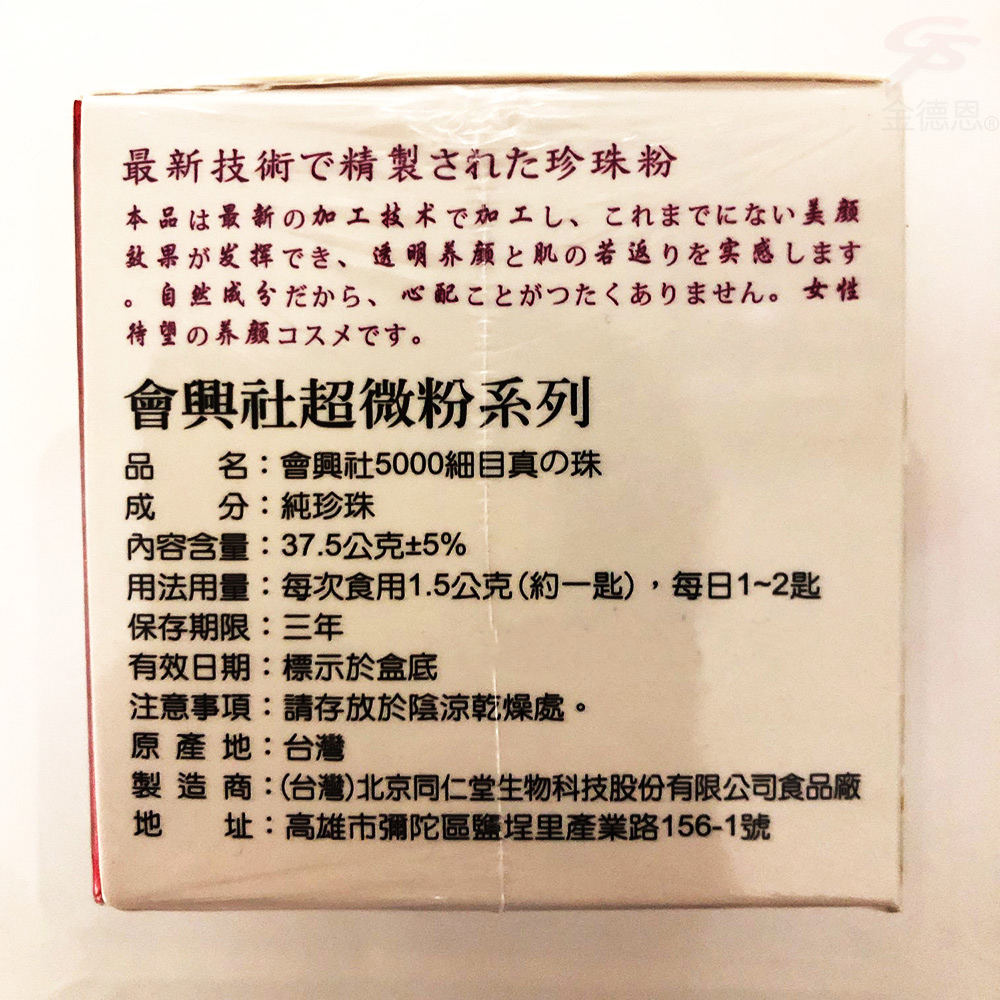 金德恩®
最新技術で精製された珍珠粉
本品は最新の加工技术で加工し、これまでにない美颜
效果が发揮でき、透明养颜と肌の若返りを实感します
。自然成分だから、心配ことがつたくありません。女性
待望の养颜コスメです。
會興社超微粉系列
品 名：會興社5000細目真の珠
成 分：純珍珠
內容含量：37.5公克±5%
用法用量：每次食用1.5公克(約一匙)，每日1~2匙
保存期限：三年
有效日期：標示於盒底
注意事項：請存放於陰涼乾燥處。
原產地：台灣
製造商：(台灣)北京同仁堂生物科技股份有限公司食品廠
地 址：高雄市彌陀區鹽埕里產業路156-1號